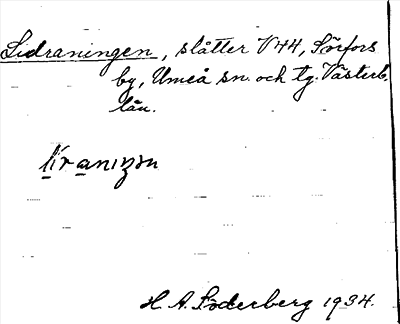 Lidraningen, slåtter V44, Sörfors
by, Umeå sn. och tg. Västerb.
län.
H. A. Söderberg 1934.